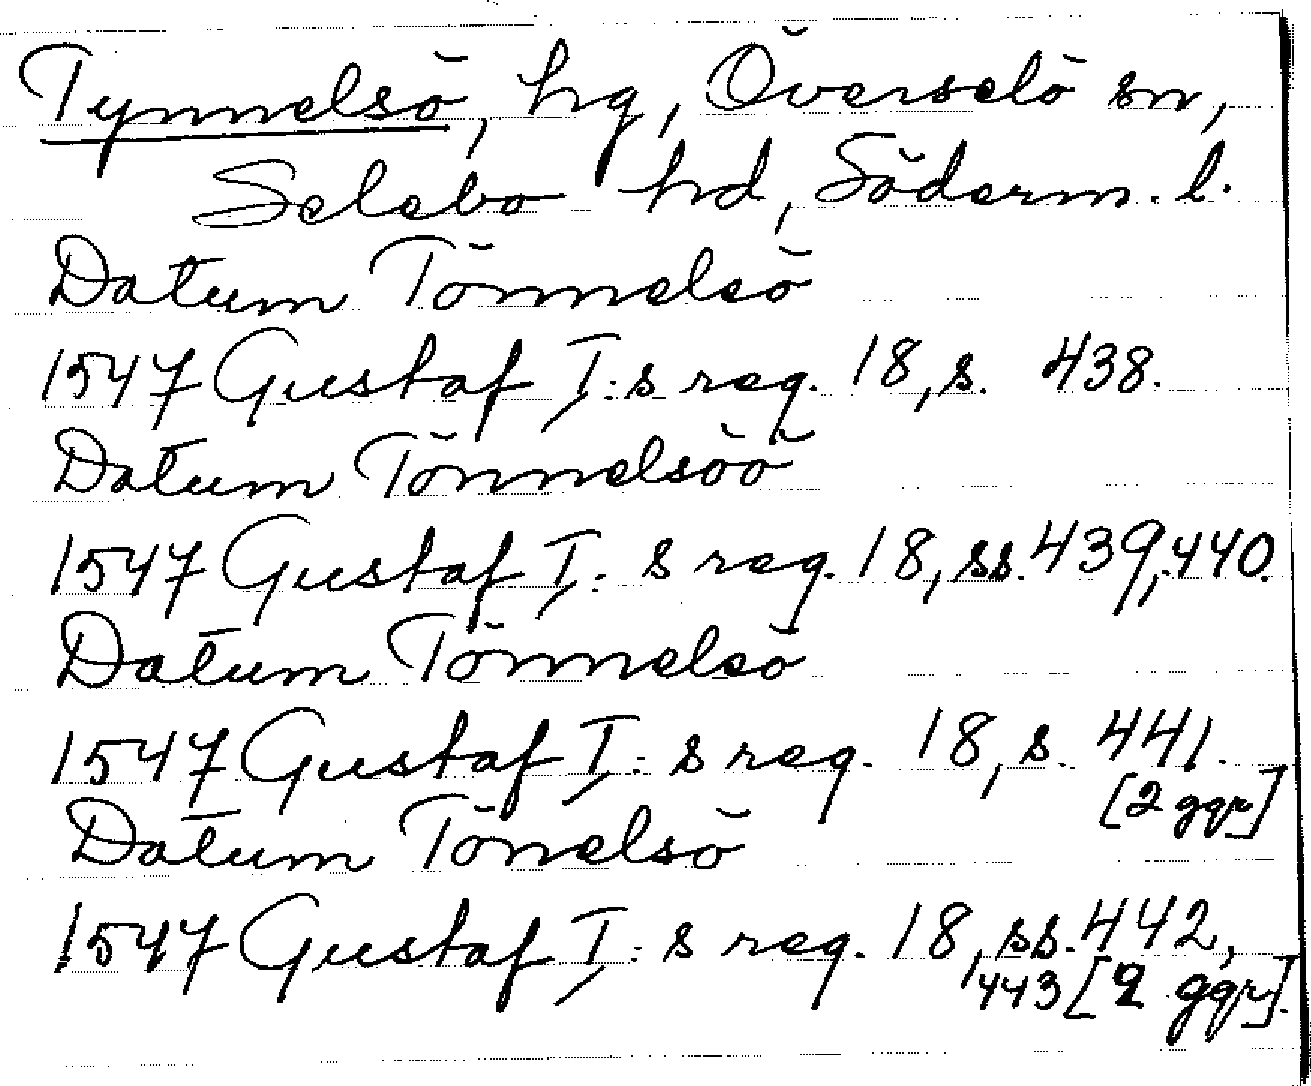 Tynnelsö, hg, Överselö sn,
Selebo hd, Söderm. l.
Datum Tönnelsö
1547 Gustaf I:s reg. 18, s. 438.
Datum Tönnelsöö
1547 Gustaf I:s reg. 18, ss. 439, 440.
Datum Tönnelsö
1547 Gustaf I:s reg. 18, s. 441.
[2 ggr]
Datum Tönelsö
1547 Gustaf I:s reg. 18, ss. 442,
443 [2 ggr].